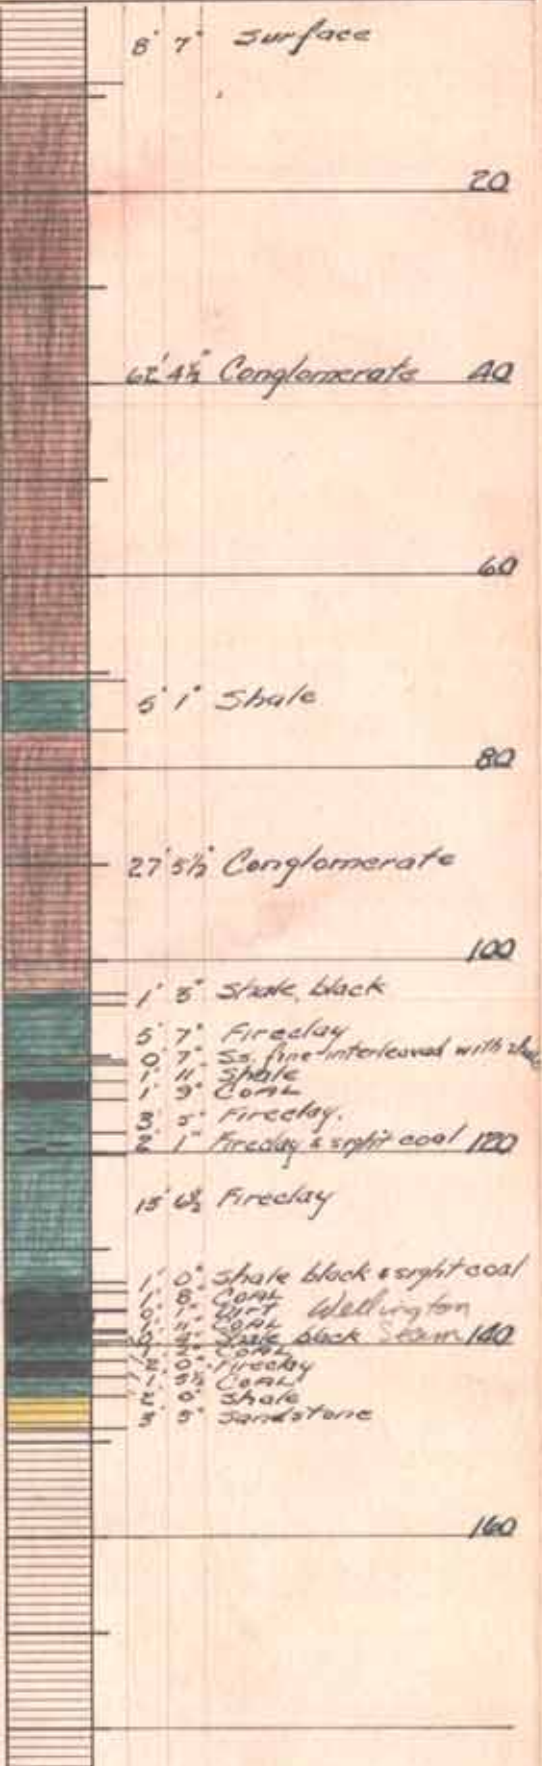 8' 7" Surface
20
62' 4½" Conglomerate 40
60
5' 1" Shale
80
27' 5½" Conglomerate
100
1' 3" Shale, black
5' 7" Fireclay
0' 7" Ss. fine interleaved with
1' 11" Shale
1' 9" COAL
3' 5" Fireclay.
2' 1" Fireclay & sght coal 120
13' 6½" Fireclay
1' 0" Shale black & sght coal
1' 8" COAL
0' 1" Dirt Wellington
1' 11" COAL
0' 4" Shale black Seam 140
1' 2" COAL
2' 0" Fireclay
1' 5½" COAL
2' 0" Shale
3' 5" Sandstone
160